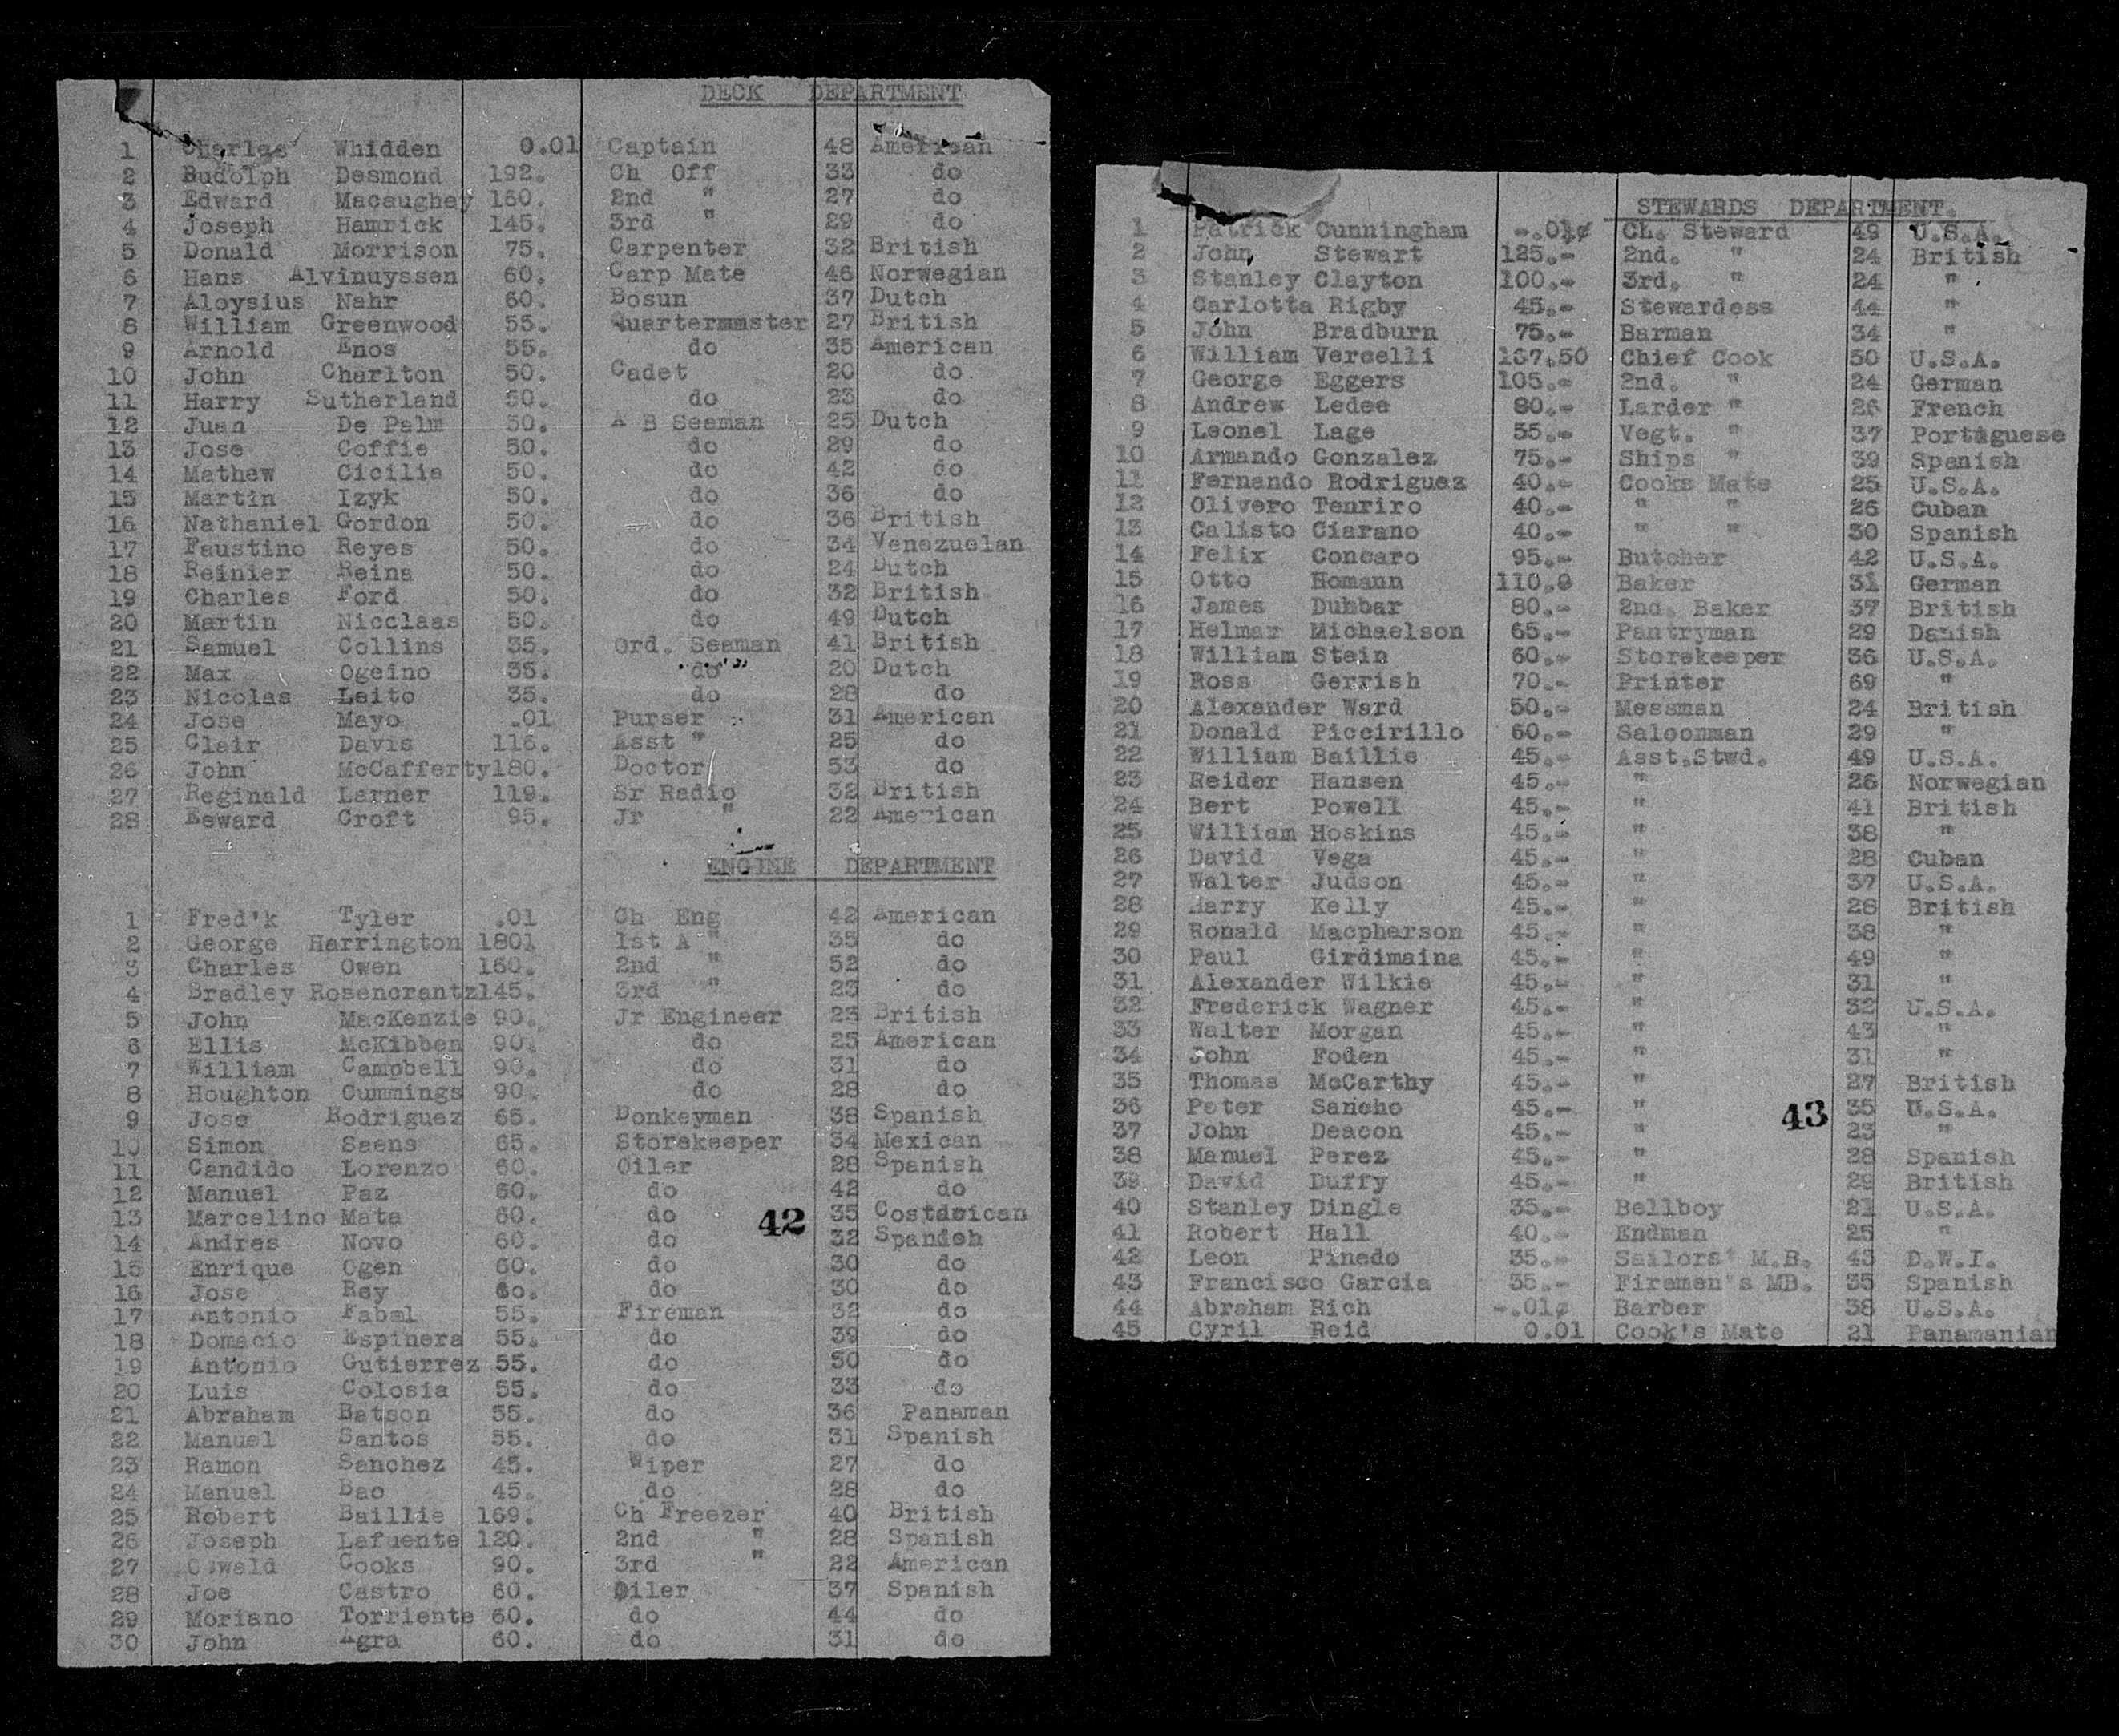 DECK DEPARTMENT
1 Charles Whidden 0.01 Captain 48 American
2 Rudolph Desmond 192. Ch Off 33 do
3 Edward Macaughey 160. 2nd " 27 do
4 Joseph Hamrick 145. 3rd " 29 do
5 Donald Morrison 75. Carpenter 32 British
6 Hans Alvinuyssen 60. Carp Mate 46 Norwegian
7 Aloysius Nahr 60. Bosun 37 Dutch
8 William Greenwood 55. Quartermaster 27 British
9 Arnold Enos 55. do 35 American
10 John Charlton 50. Cadet 20 do
11 Harry Sutherland 50. do 23 do
12 Juan De Palm 50. A B Seaman 25 Dutch
13 Jose Coffie 50. do 29 do
14 Mathew Cicilia 50. do 42 do
15 Martin Izyk 50. do 36 do
16 Nathaniel Gordon 50. do 36 British
17 Faustino Reyes 50. do 34 Venezuelan
18 Reinier Reina 50. do 24 Dutch
19 Charles Ford 50. do 32 British
20 Martin Nicclaas 50. do 49 Dutch
21 Samuel Collins 35. Ord. Seaman 41 British
22 Max Ogeino 35. do 20 Dutch
23 Nicolas Leito 35. do 28 do
24 Jose Mayo .01 Purser 31 American
25 Clair Davis 116. Asst " 25 do
26 John McCafferty 180. Doctor 53 do
27 Reginald Larner 119. Sr Radio 32 British
28 Eeward Croft 95. Jr " 22 American
ENGINE DEPARTMENT
1 Fred'k Tyler .01 Ch Eng 42 American
2 George Harrington 1801 1st A " 35 do
3 Charles Owen 160. 2nd " 52 do
4 Bradley Rosencrantz 145. 3rd " 23 do
5 John MacKenzie 90. Jr Engineer 23 British
6 Ellis McKibben 90. do 25 American
7 William Campbell 90. do 31 do
8 Houghton Cummings 90. do 28 do
9 Jose Rodriguez 65. Donkeyman 38 Spanish
10 Simon Saens 65. Storekeeper 34 Mexican
11 Candido Lorenzo 60. Oiler 28 Spanish
12 Manuel Paz 60. do 42 do
13 Marcelino Mata 60. do 35
42
14 Andres Novo 60. do 32 Spanish
15 Enrique Ogen 60. do 30 do
16 Jose Rey 60. do 30 do
17 Antonio Fabal 55. Fireman 32 do
18 Domacio Espinera 55. do 39 do
19 Antonio Gutierrez 55. do 50 do
20 Luis Colosia 55. do 33 do
21 Abraham Batson 55. do 36 Panaman
22 Manuel Santos 55. do 31 Spanish
23 Ramon Sanchez 45. Wiper 27 do
24 Manuel Bao 45. do 28 do
25 Robert Baillie 169. Ch Freezer 40 British
26 Joseph Lafuente 120. 2nd " 28 Spanish
27 Oswald Cooks 90. 3rd " 22 American
28 Joe Castro 60. Oiler 37 Spanish
29 Moriano Torriente 60. do 44 do
30 John Agra 60. do 31 do
STEWARDS DEPARTMENT.
1 Patrick Cunningham -.01¢ Ch. Steward 49 U.S.A.
2 John Stewart 125.- 2nd. " 24 British
3 Stanley Clayton 100.- 3rd. " 24 "
4 Carlotta Rigby 45.- Stewardess 44 "
5 John Bradburn 75.- Barman 34 "
6 William Vercelli 167.50 Chief Cook 50 U.S.A.
7 George Eggers 105.- 2nd. " 24 German
8 Andrew Ledee 80.- Larder " 26 French
9 Leonel Lage 55.- Vegt. " 37 Portuguese
10 Armando Gonzalez 75.- Ships " 39 Spanish
11 Fernando Rodriguez 40.- Cooks Mate 25 U.S.A.
12 Olivero Tenriro 40.- " " 26 Cuban
13 Calisto Ciarano 40.- " " 30 Spanish
14 Felix Concaro 95.- Butcher 42 U.S.A.
15 Otto Homann 110.0 Baker 31 German
16 James Dunbar 80.- 2nd. Baker 37 British
17 Helmar Michaelson 65.- Pantryman 29 Danish
18 William Stein 60.- Storekeeper 36 U.S.A.
19 Ross Gerrish 70.- Printer 69 "
20 Alexander Ward 50.- Messman 24 British
21 Donald Piccirillo 60.- Saloonman 29 "
22 William Baillie 45.- Asst.Stwd. 49 U.S.A.
23 Reider Hansen 45.- " 26 Norwegian
24 Bert Powell 45.- " 41 British
25 William Hoskins 45.- " 38 "
26 David Vega 45.- " 28 Cuban
27 Walter Judson 45.- " 37 U.S.A.
28 Harry Kelly 45.- " 28 British
29 Ronald Macpherson 45.- " 38 "
30 Paul Girdimaina 45.- " 49 "
31 Alexander Wilkie 45.- " 31 "
32 Frederick Wagner 45.- " 32 U.S.A.
33 Walter Morgan 45.- " 43 "
34 John Foden 45.- " 31 "
35 Thomas McCarthy 45.- " 27 British
36 Peter Sancho 45.- " 35 U.S.A.
43
37 John Deacon 45.- " 23 "
38 Manuel Perez 45.- " 28 Spanish
39 David Duffy 45.- " 29 British
40 Stanley Dingle 35.- Bellboy 21 U.S.A.
41 Robert Hall 40.- Endman 25 "
42 Leon Pinedo 35.- Sailors' M.B. 43 D.W.I.
43 Francisco Garcia 35.- Firemen's MB. 35 Spanish
44 Abraham Rich -.01¢ Barber 38 U.S.A.
45 Cyril Reid 0.01 Cook's Mate 21 Panamanian